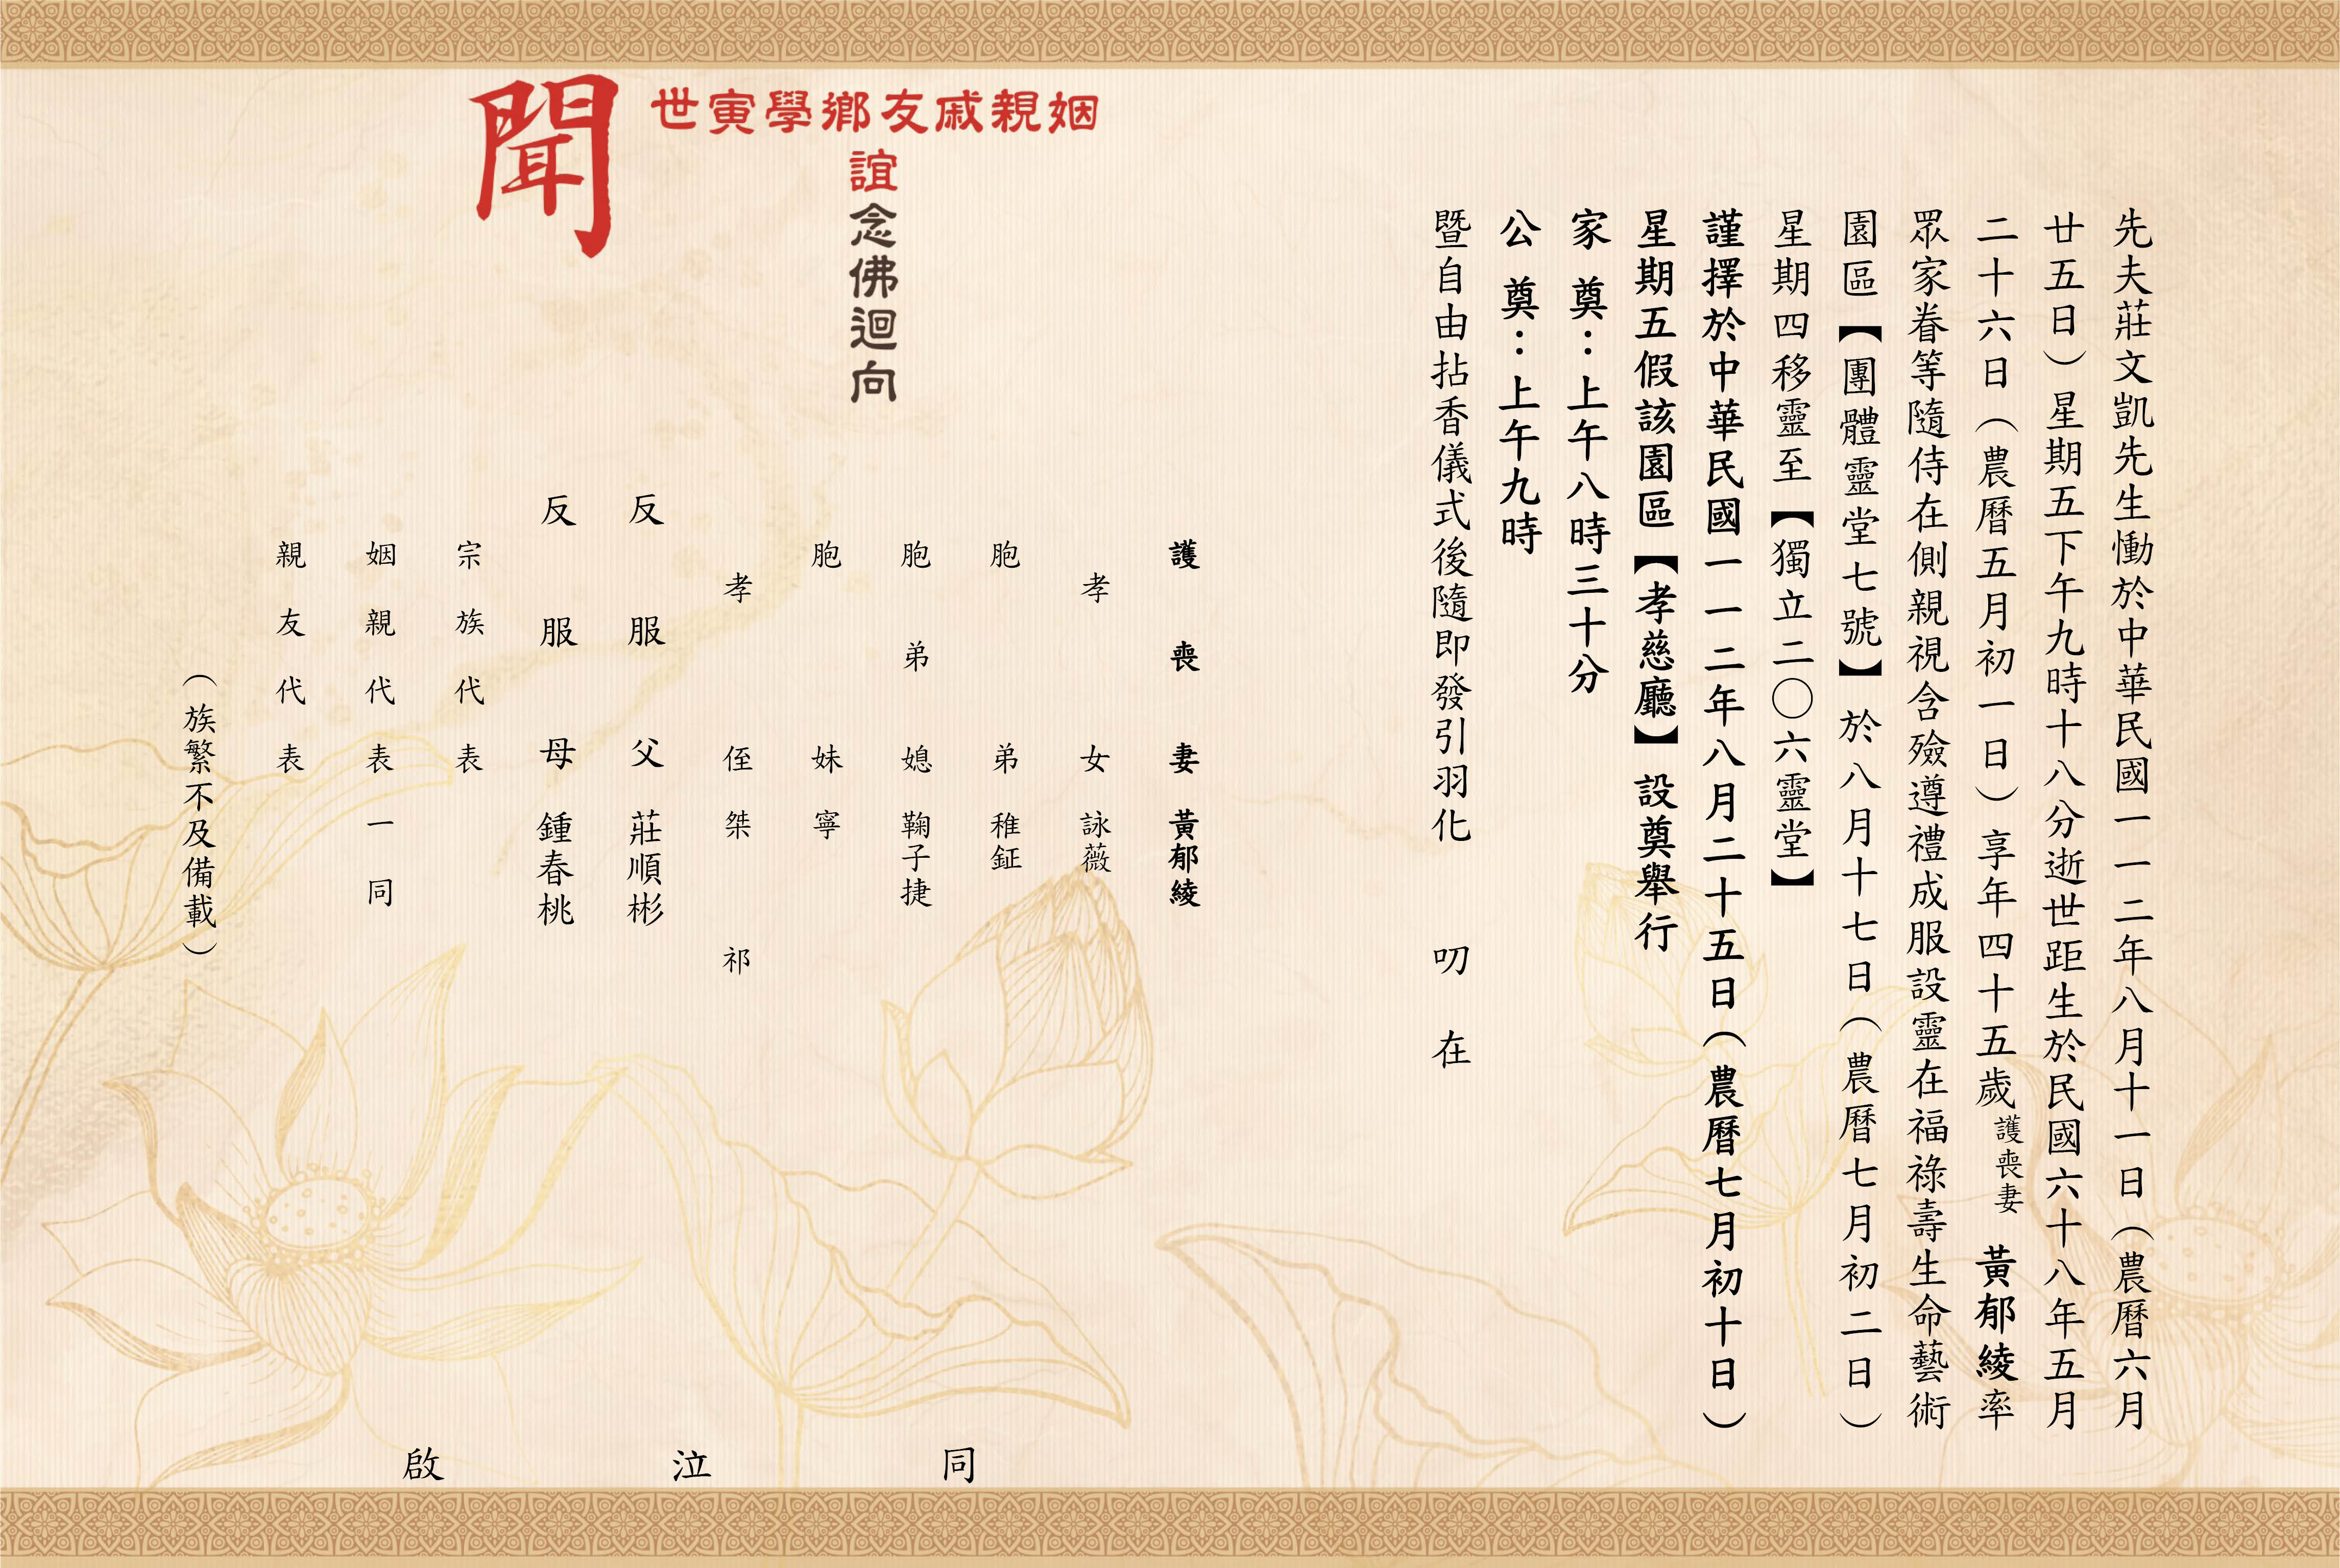 先夫莊文凱先生慟於中華民國一一二年八月十一日（農曆六月
廿五日）星期五下午九時十八分逝世距生於民國六十八年五月
二十六日（農曆五月初一日）享年四十五歲護喪妻 黃郁綾率
眾家眷等隨侍在側親視含殮遵禮成服設靈在福祿壽生命藝術
園區【團體靈堂七號】於八月十七日（農曆七月初二日）
星期四移靈至【獨立二〇六靈堂】
謹擇於中華民國一一二年八月二十五日（農曆七月初十日）
星期五假該園區【孝慈廳】設奠舉行
家奠：上午八時三十分
公奠：上午九時
暨自由拈香儀式後隨即發引羽化 叨在
姻親戚友鄉學寅世
誼念佛迴向
聞
護喪妻 黃郁綾
孝女 詠薇
胞弟 稚鉦
胞弟媳 鞠子捷
胞妹 寧
孝侄 桀 祁
反服父 莊順彬
反服母 鍾春桃
宗族代表
姻親代表一同
親友代表
（族繁不及備載）
同泣啟